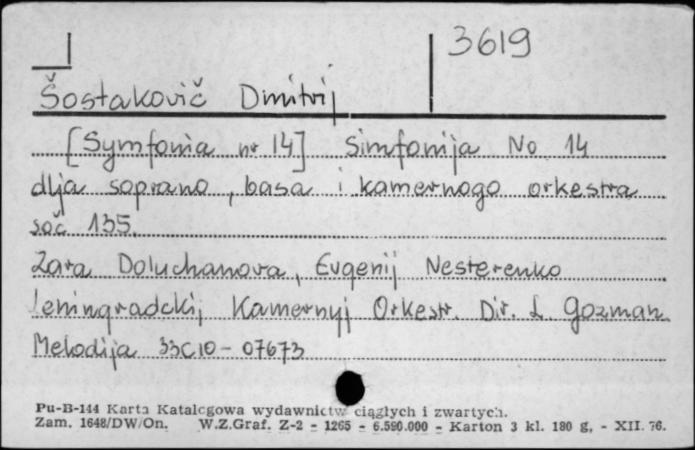 3619
Šostakovič Dmitrij
[Symfonia nr 14] Simfonija No 14
dlja soprano, basa i kamernogo orkestra
soč 135.
Zara Doluchanova, Evgenij Nesterenko
Leningradckij Kamernyj Orkestr. Dir. L Gozman
Melodija 33C10-07673
Pu-B-144 Karta Katalogowa wydawnictw ciągłych i zwartych.
Zam. 1648/DW/On. W.Z.Graf. Z-2 - 1265 - 6.590.000 - Karton 3 kl. 180 g, - XII. 76.